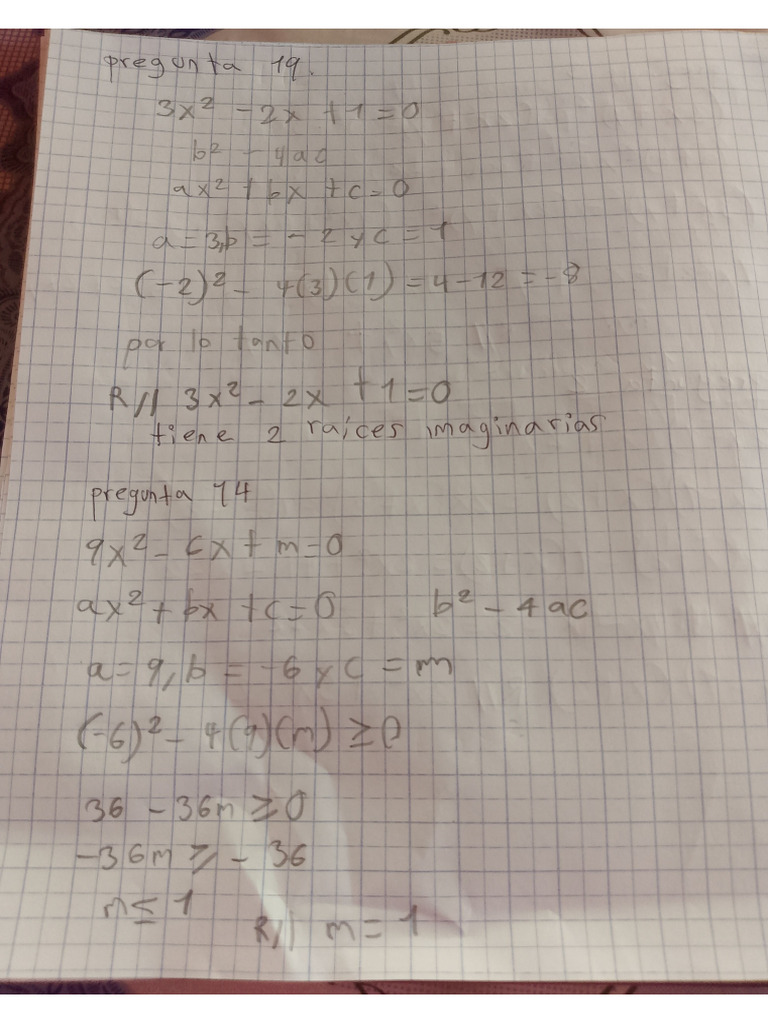 pregunta 19.
3x² - 2x + 1 = 0
b² - 4ac
ax² + bx + c = 0
a = 3, b = - 2 y c = 1
(-2)² - 4(3)(1) = 4 - 12 = - 8
por lo tanto
R// 3x² - 2x + 1 = 0
tiene 2 raíces imaginarias
pregunta 14
9x² - 6x + m = 0
ax² + bx + c = 0 b² - 4ac
a = 9, b = -6 y c = m
(-6)² - 4(9)(m) ≥ 0
36 - 36m ≥ 0
-36m ≥ - 36
m ≤ 1 R// m = 1